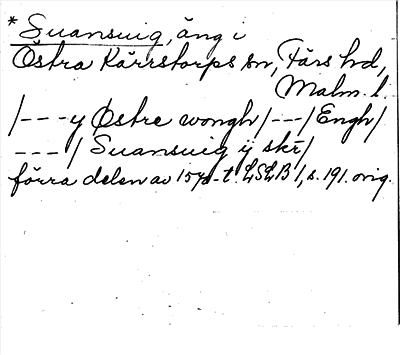 * Suansuig, äng i
Östra Kärrstorps sn, Färs hd,
Malm. l.
/---y Østre wongh/---/Engh/
---/ Suansuig ij skr/
förra delen av 1570-t. LSLB 1, s. 191. orig.